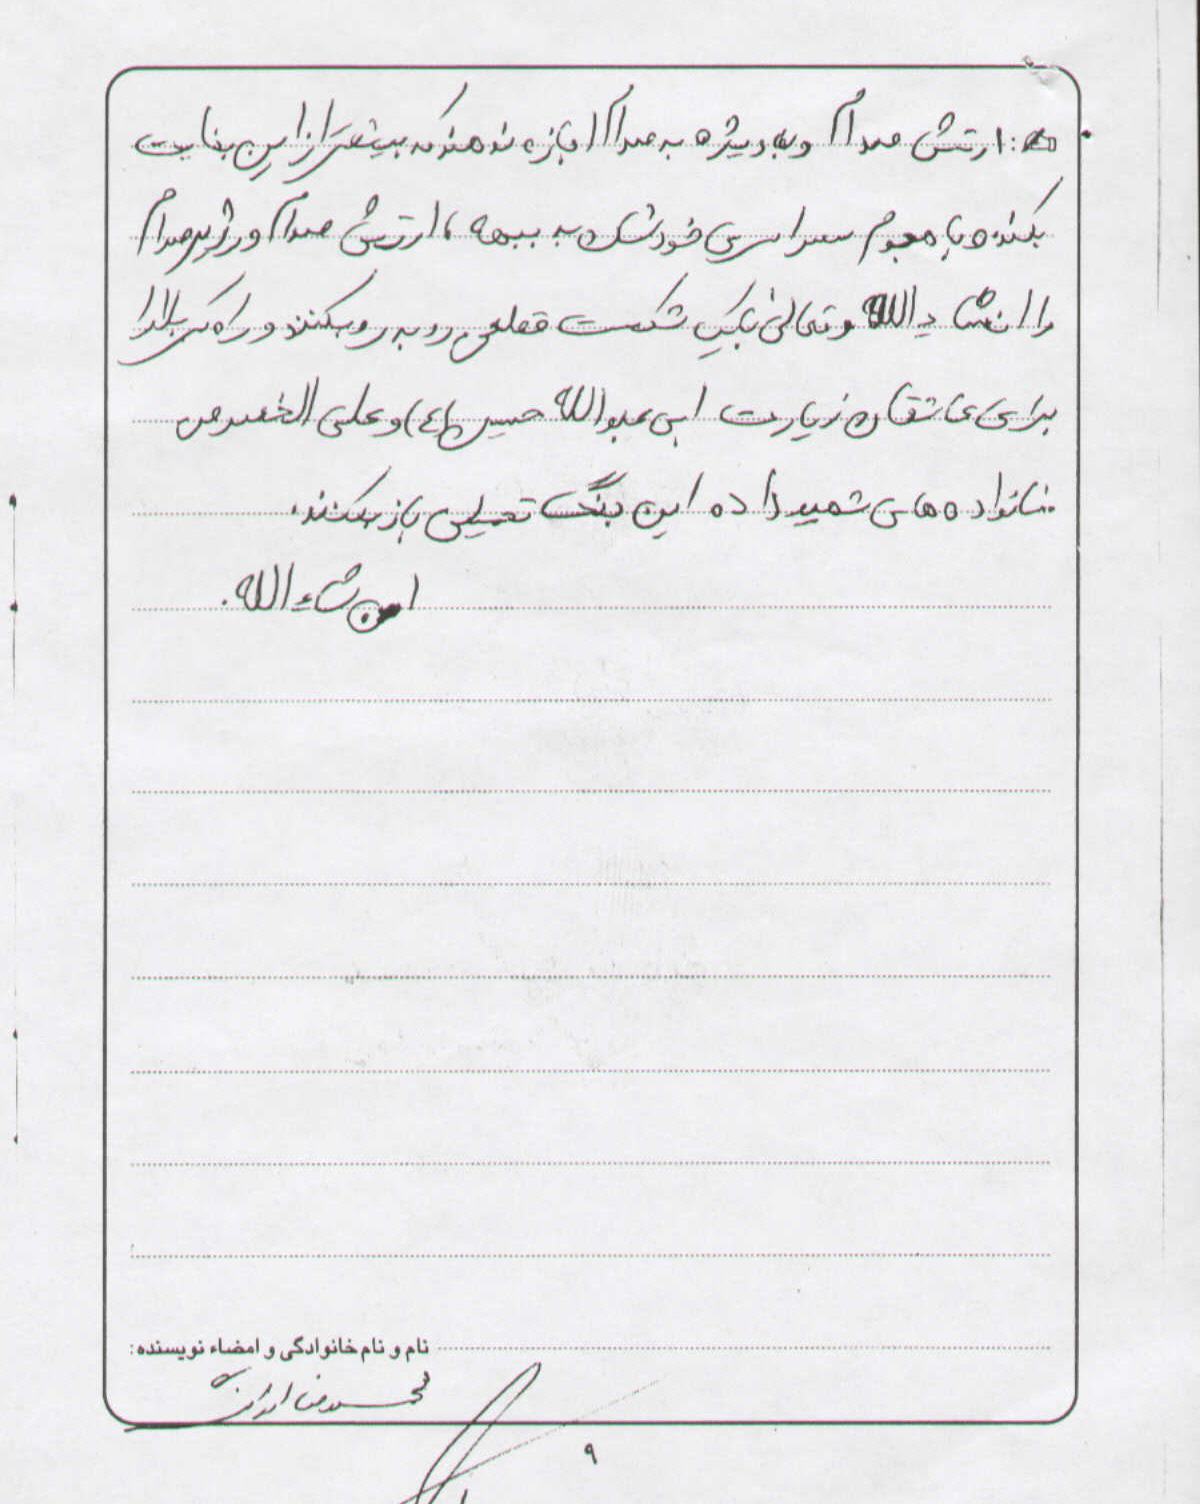 که: ارتش صدام و به ویژه به صدام اجازه ندهند که بیشتر از این جنایت
بکند و با هجوم سراسری خودشان به جبهه ، ارتش صدام و رژیم صدام
را انشاء الله و تعالی با یک شکست قطعی روبه رو بکنند و راه کربلا را
برای عاشقان زیارت ابی عبدالله حسین (ع) و علی الخصوص
خانواده های شهید داده این جنگ تحمیلی باز بکنند.
ان شاء الله.
نام و نام خانوادگی و امضاء نویسنده:
محمدرضا
۹